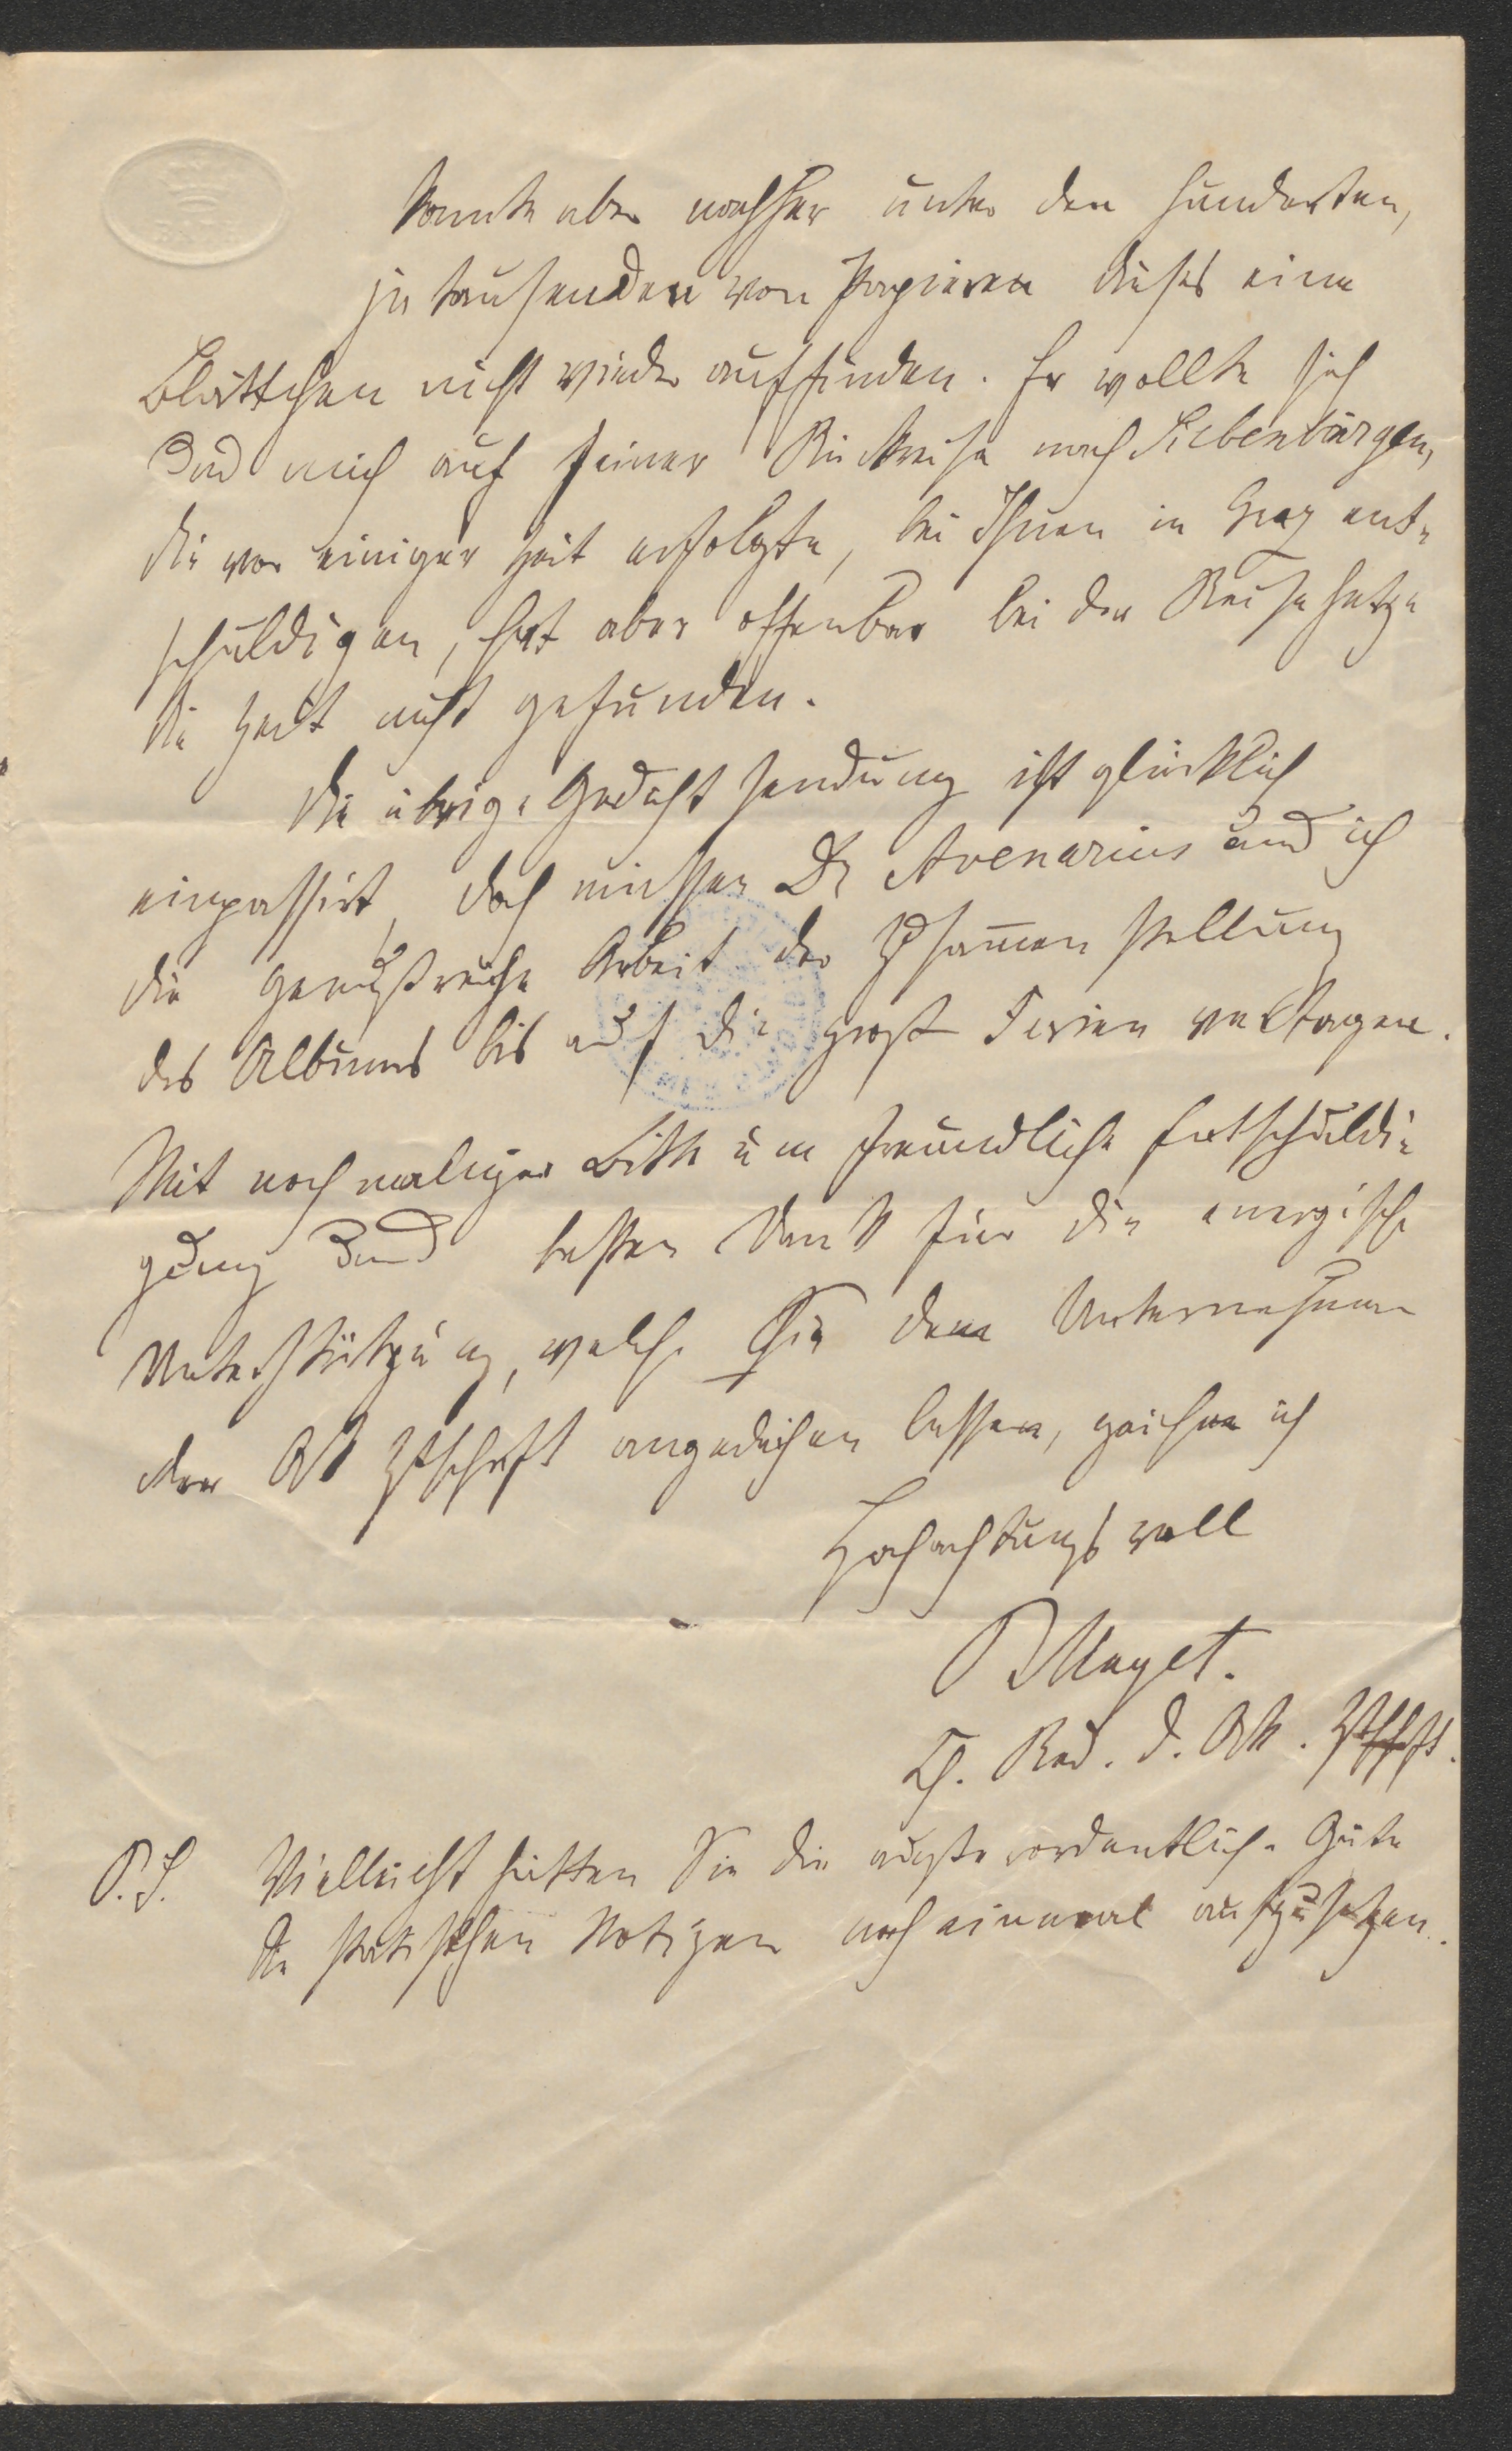 konnte aber nachher unter den hunderten,
ja tausenden von Papieren dieses eine
Blättchen nicht wieder auffinden. Er wollte sich
und mich auf seiner Rückreise nach Siebenbürgen,
die vor einiger Zeit erfolgte, bei Ihnen in Graz ent-
schuldigen, hat aber offenbar bei der Reisehetze
die Zeit nicht gefunden.
Die übrige Gedichtsendung ist glücklich
einpassirt, doch müssen Dr Avenarius und ich
die genußreiche Arbeit der Zusam̅enstellung
des Albums bis auf die große Ferien vertagen.
Mit nochmaliger Bitte um freundliche Entschuldi-
gung und besten Dank für die energische
Unterstützung, welche Sie dem Unternehmen
der Ak Ztschrft angedeihen lassen, zeichne ich
Hochachtungsvoll
P Maget.
Ch. Red. d. Ak. Ztschft.
P.S. Vielleicht hätten Sie die außerordentliche Güte
die statistischen Notizen noch einmal aufzusetzen.